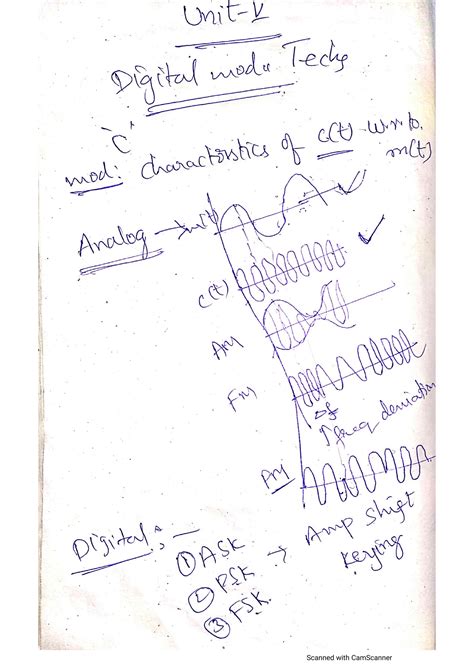 Unit-V
Digital modu Techs
"C"
mod: charactoristics of c(t) w.r.to.
m(t)
Analog → m(t)
c(t)
AM
FM
Δf
↑ freq deviation
PM
Digital: —
① ASK → Amp Shift
Keying
② PSK
③ FSK.
Scanned with CamScanner